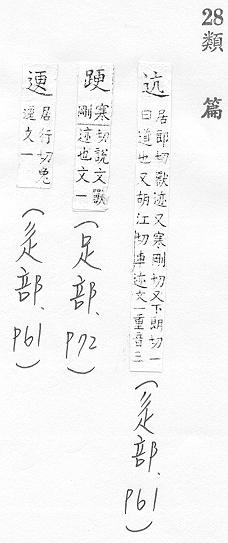 28類篇
迒 居郎切獸迹又寒剛切又下朗切一
曰道也又胡江切車迹文一重音三
(辵部、P61)
䟘 寒剛切說文獸
迹也文一
(足部、P72)
居行切兔
逕文一
(辵部、P61)